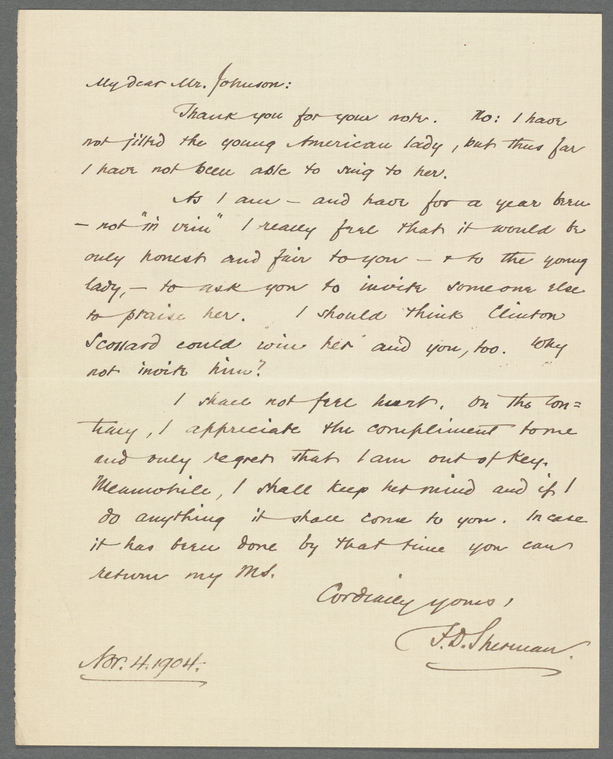 My dear Mr. Johnson:
Thank you for your note. No: I have
not jilted the young American lady, but thus far
I have not been able to sing to her.
As I am — and have for a year been
— not "in vein" I really feel that it would be
only honest and fair to you — & to the young
lady, — to ask you to invite someone else
to praise her. I should think Clinton
Scollard could win her and you, too. Why
not invite him?
I shall not feel hurt. On the con=
trary, I appreciate the compliment to me
and only regret that I am out of key.
Meanwhile, I shall keep her in mind and if I
do anything it shall come to you. In case
it has been done by that time you can
return my MS.
Cordially yours,
F. D. Sherman.
Nov. 4. 1904.